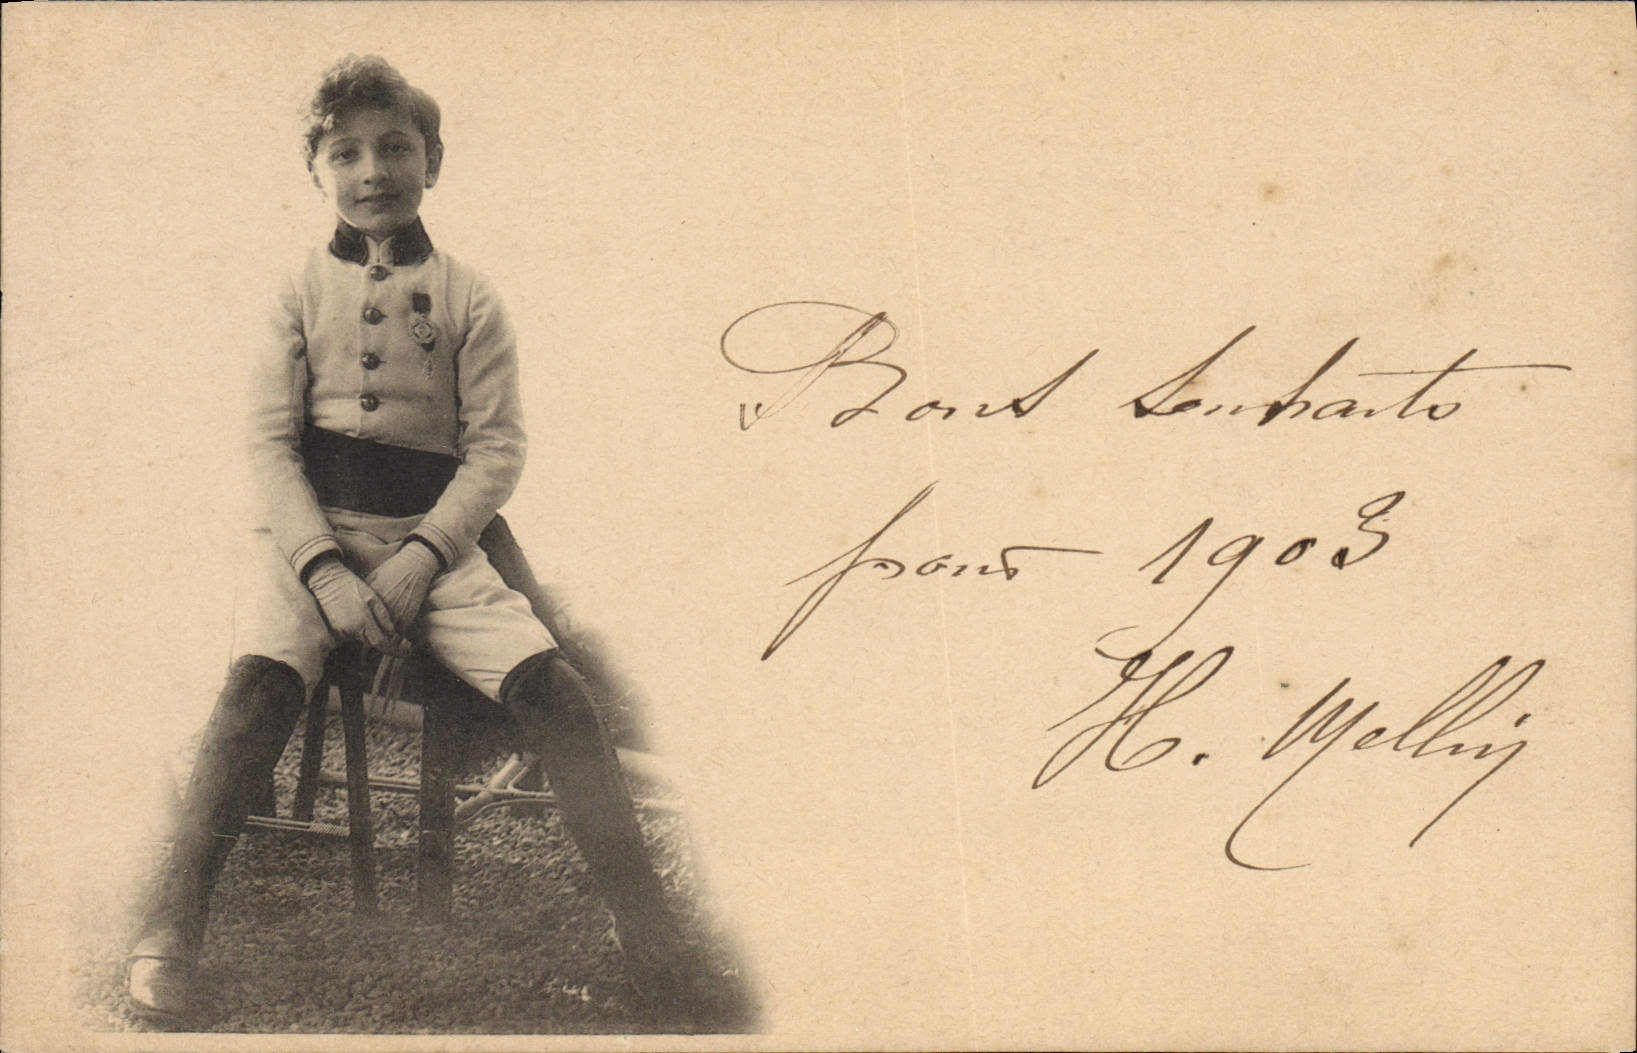 Bons souhaits
pour 1903
H. Mellin